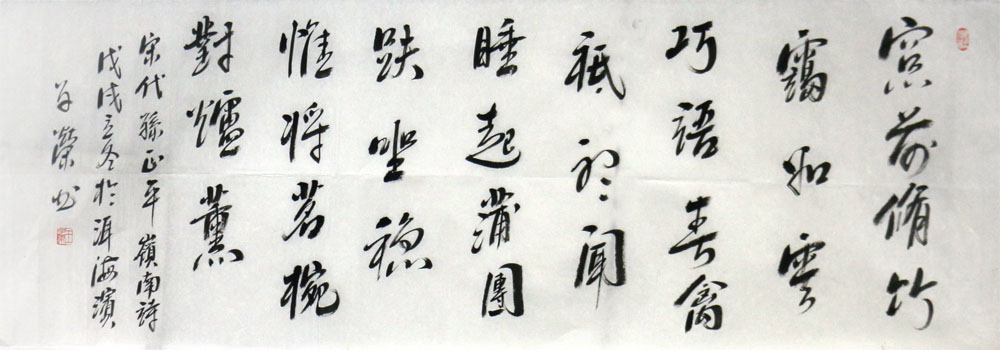 窓前脩竹
靄如雲
巧語春禽
祗聞
睡起蒲團
趺坐穩
惟将茗椀
對爐薰
宋代孫正平嶺南詩
戊戌立冬於洱海濱
榮书